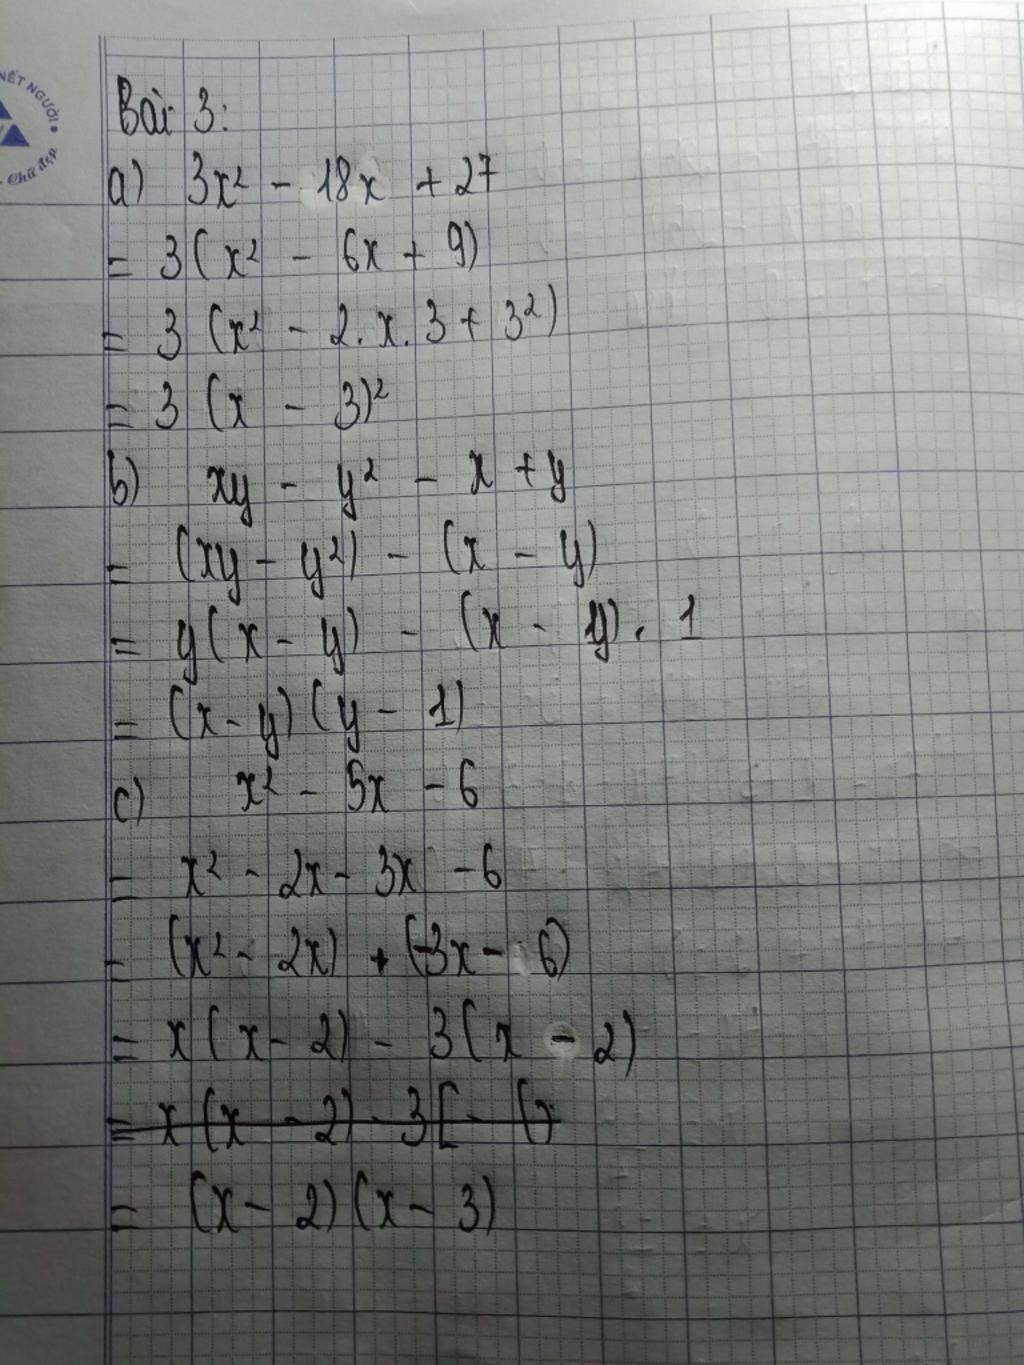 NẾT NGƯỜI
Chữ đẹp
Bài 3:
a) 3x² - 18x + 27
= 3(x² - 6x + 9)
= 3 (x² - 2.x.3 + 3²)
= 3 (x - 3)²
b) xy - y² - x + y
= (xy - y²) - (x - y)
= y(x - y) - (x - y). 1
= (x - y) (y - 1)
c) x² - 5x - 6
= x² - 2x - 3x - 6
= (x² - 2x) + (-3x - 6)
= x (x - 2) - 3 (x - 2)
= x (x - 2) - 3 [- (
= (x - 2) (x - 3)